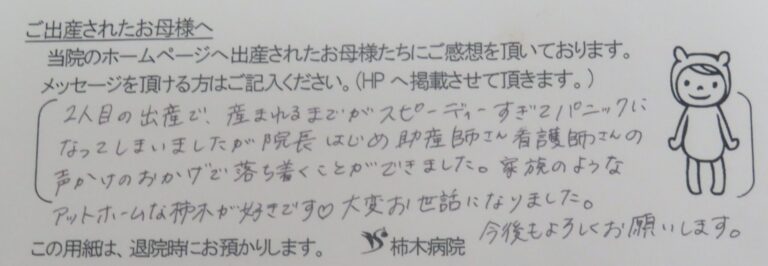 ご出産されたお母様へ
当院のホームページへ出産されたお母様たちにご感想を頂いております。
メッセージを頂ける方はご記入ください。(HPへ掲載させて頂きます。)
2人目の出産で、産まれるまでがスピーディーすぎてパニックに
なってしまいましたが院長はじめ助産師さん看護師さんの
声かけのおかげで落ち着くことができました。家族のような
アットホームな柿木が好きです♡大変お世話になりました。
今後もよろしくお願いします。
この用紙は、退院時にお預かりします。 柿木病院